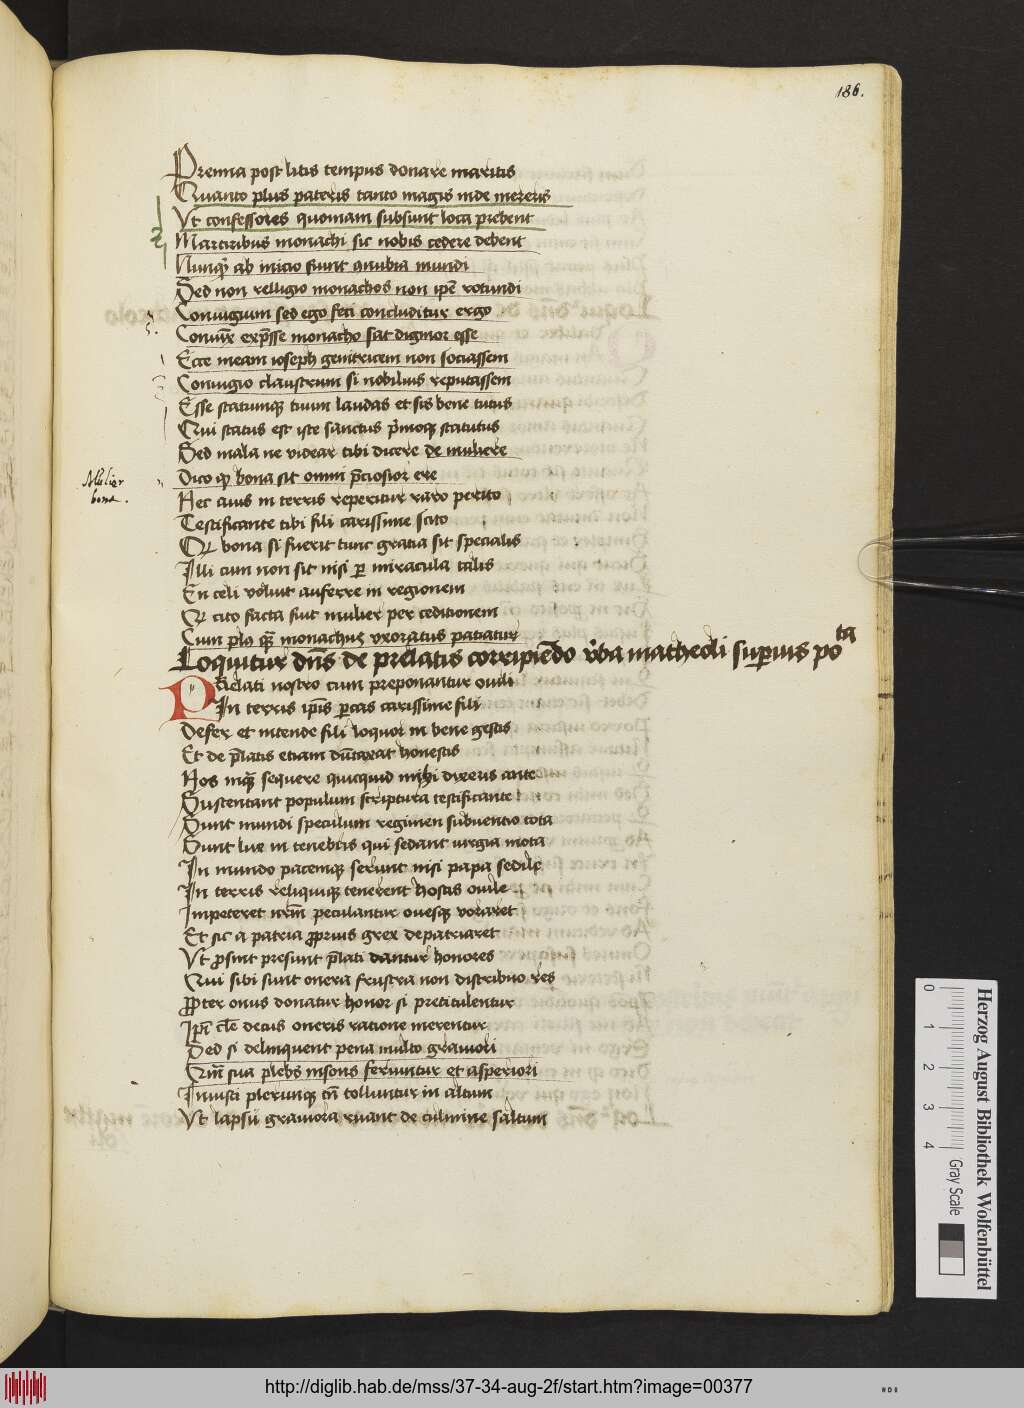 186.
Premia post litis tempus donare maritis
Quanto plus pateris tanto magis inde mereris
Ut confessores quoniam subsunt loca prebent
Martiribus monachi sic nobis cedere debent
Nunqȝ ab inicio sunt connubia mundi
Sed non relligio monachos non ipe rotundi
Coniugium sed ego feci concluditur ergo
Coniux expsse monacho sat dignior esse
Ecce meam ioseph genitricem non sociassem
Coniugio claustrum si nobilius reputassem
Esse statumqȝ tuum laudas et sis bene tutus
Qui status est iste sanctus pimoqȝ statutus
Sed mala ne videar tibi dicere de muliere
Mulier
bona.
Dico qp bona sit omni pciosior ere
Hec auis in terris reperitur raro perito
Testificante tibi fili carissime scito
Qr bona si fuerit tunc gratia sit specialis
Illi cum non sit nisi p miracula talis
En celi voluit auferre in regionem
Qr cito facta fuit mulier per ceditionem
Cum plus qȝ monachus uxoratus patiatur
Loquitur dns de prelatis corripiedo vba matheoli supius pota
Prelati nostro cum preponantur ouili
In terris ipis pcas carissime fili
Defer et intende fili loquor in bene gestis
Et de platis etiam dutaxat honestis
Hos inqȝ sequere quicquid mihi dixeris ante
Sustentant populum scriptura testificante
Sunt mundi speculum regimen subuentio tota
Sunt lux in tenebris qui sedant iurgia mota
In mundo pacemqȝ serunt nisi papa sedile
In terris reliquiqȝ tenerent hostis ouile
Impeteret nrm peculantur ouesqȝ voraret
Et sic a patria pprius grex depatriaret
Ut psint presunt plati dantur honores
Qui sibi sunt onera frustra non distribuo res
Ppter onus donatur honor si pretitulentur
Ipi cle decus oneris ratione merentur
Sed si delinquent pena multo grauiori
Qm sua plebs insons feriuntur et asperiori
Iniusti plerunqȝ tn tolluntur in altum
Ut lapsu grauiora ruant de culmine saltum
Herzog August Bibliothek Wolfenbüttel
0 1 2 3 4
Gray Scale
http://diglib.hab.de/mss/37-34-aug-2f/start.htm?image=00377